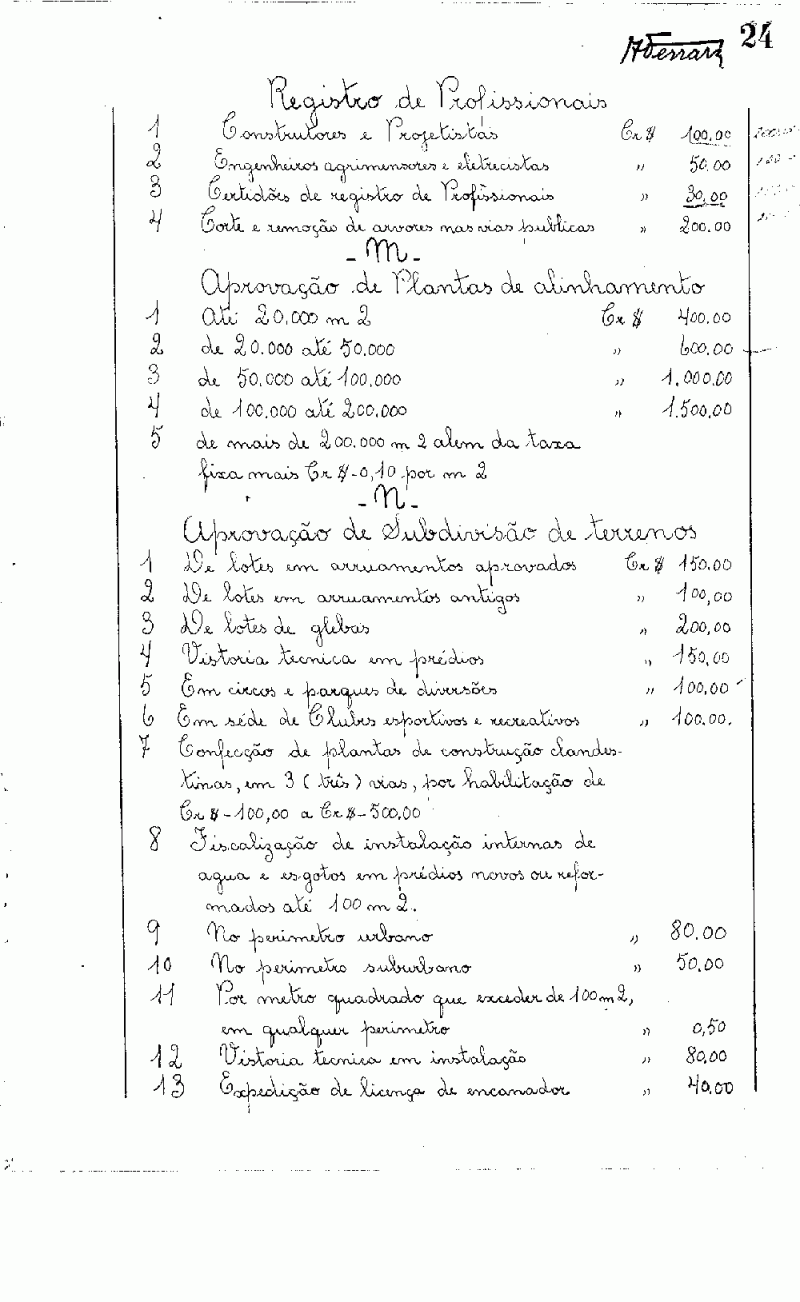 24
Registro de Profissionais
1 Construtores e Projetistas Cr$ 100,00
2 Engenheiros agrimensores e eletrecistas " 50.00
3 Certidões de registro de Profissionais " 30,00
4 Corte e remoção de arvores nas vias publicas " 200.00
- M -
Aprovação de Plantas de alinhamento
1 Até 20.000 m 2 Cr $ 400.00
2 de 20.000 até 50.000 " 600.00
3 de 50.000 até 100.000 " 1.000.00
4 de 100.000 até 200.000 " 1.500,00
5 de mais de 200.000 m 2 alem da taxa
fixa mais Cr $-0,10 por m 2
- N -
Aprovação de Subdivisão de terrenos
1 De lotes em arruamentos aprovados Cr $ 150.00
2 De lotes em arruamentos antigos " 100,00
3 De lotes de glebas " 200,00
4 Vistoria tecnica em prédios " 150,00
5 Em circos e parques de diversões " 100,00
6 Em séde de Clubes esportivos e recreativos " 100.00.
7 Confecção de plantas de construção clandes-
tinas, em 3 (três) vias, por habilitação de
Cr $-100,00 a Cr $-500,00
8 Fiscalização de instalação internas de
agua e esgotos em prédios novos ou refor-
mados até 100 m 2.
9 No perimetro urbano " 80.00
10 No perimetro suburbano " 50.00
11 Por metro quadrado que exceder de 100 m 2,
em qualquer perimetro " 0,50
12 Vistoria tecnica em instalação " 80,00
13 Expedição de licença de encanador " 40,00